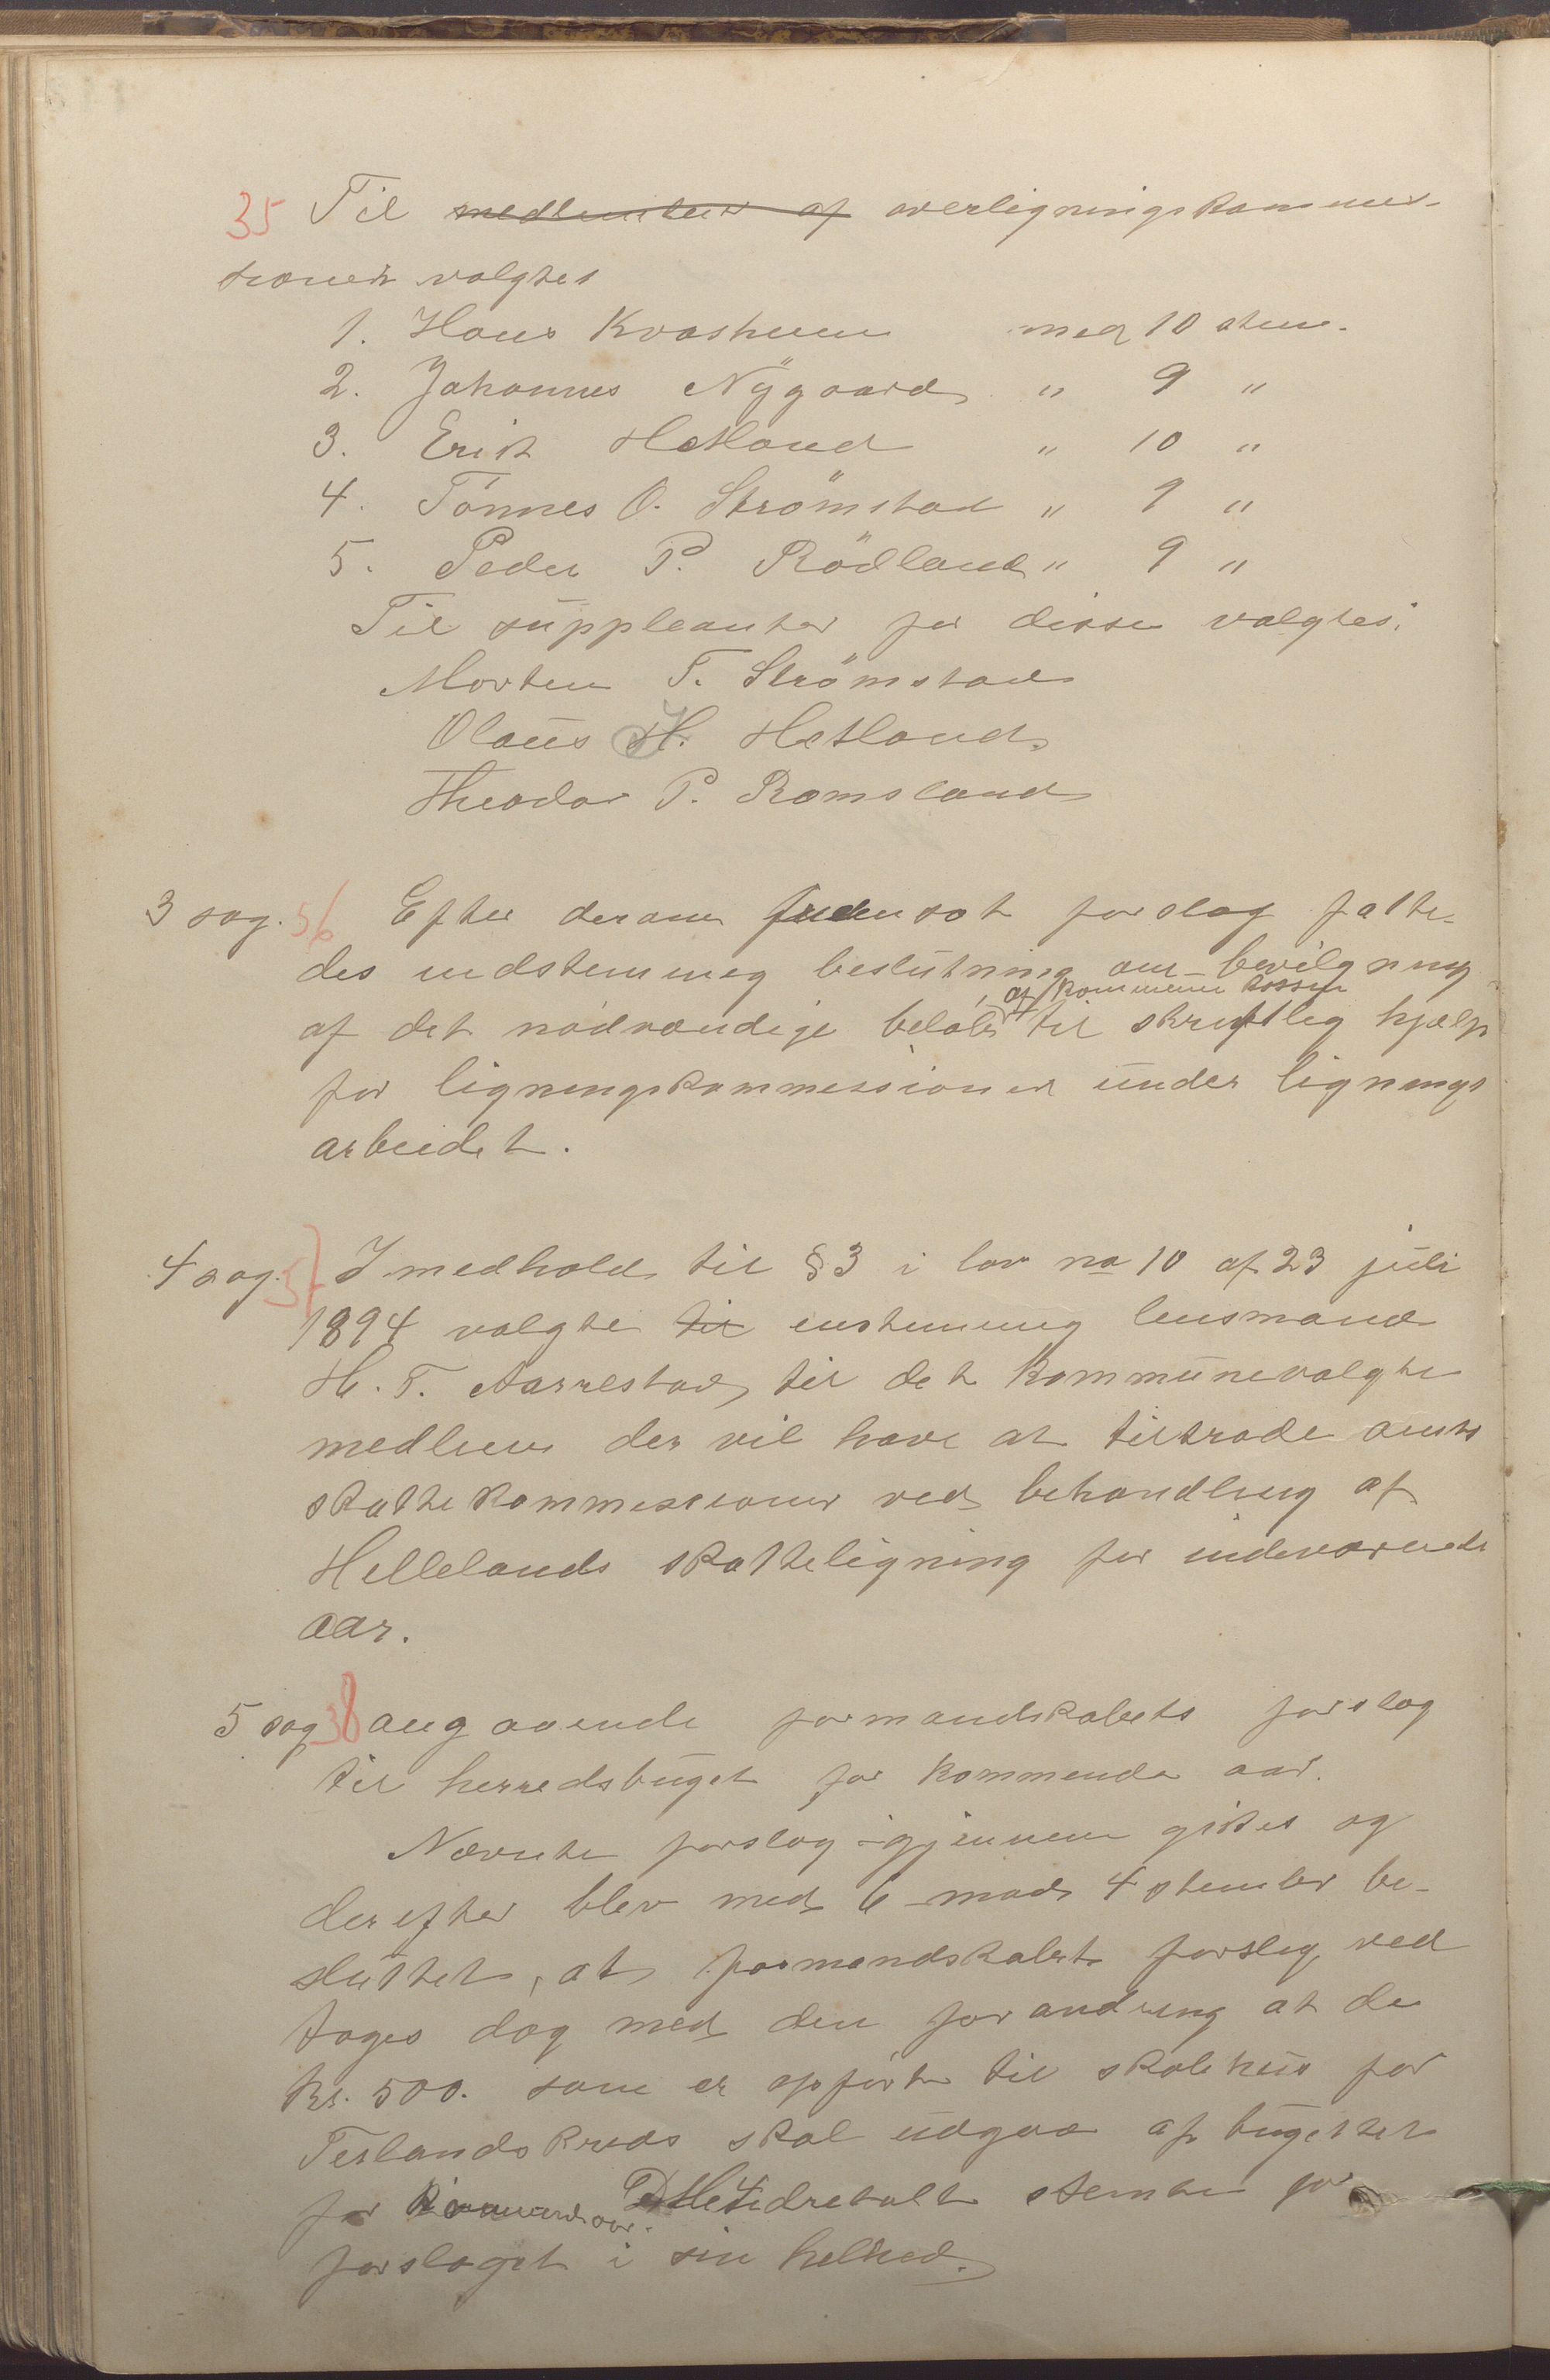 35 Til medlemmer af overligningskommis-
sionen valgtes
1. Hans Kvasheim med 10 stem.
2. Johannes Nÿgaard " 9 "
3. Erik Hetland " 10 "
4. Tönnes O. Strömstad " 9 "
5. Peder P. Rödland " 9 "
Til suppleanter for disse valgtes:
Morten T. Strömstad
Olaus H. Hetland
Theodor P. Ramsland
3 sag. 36 Efter derom fremsat forslag fatte-
des indstemmig beslutning om bevilgning
af kommunekassen
af det nødvendige beløb til skriftlig hjælp
for ligningskommissionen under lignings
arbeidet.
4 sag. 37 I medhold til §3 i lov no 10 af 23 juli
1894 valgte til enstemmig lensmand
H. T. Aarrestad til det kommunevalgte
medlem der vil have at tiltræde amts
skattekommissionen ved behandling af
Hellelands skatteligning for indeværende
aar.
5 sag 38 angaaende formandskabets forslag
til herredsbuget for kommende aar.
Nævnte forslag igjennem gikes og
derefter blev med 6 mod 4 stemmer be-
sluttet, at formandskabets forslag ved
toges dog med den forandring at de
kr. 500. som er opførte til skolehus for
Teslandskreds skal udgaa af bugettet
for kommende aar. Mindretallet stemte for
forslaget i sin helhed.